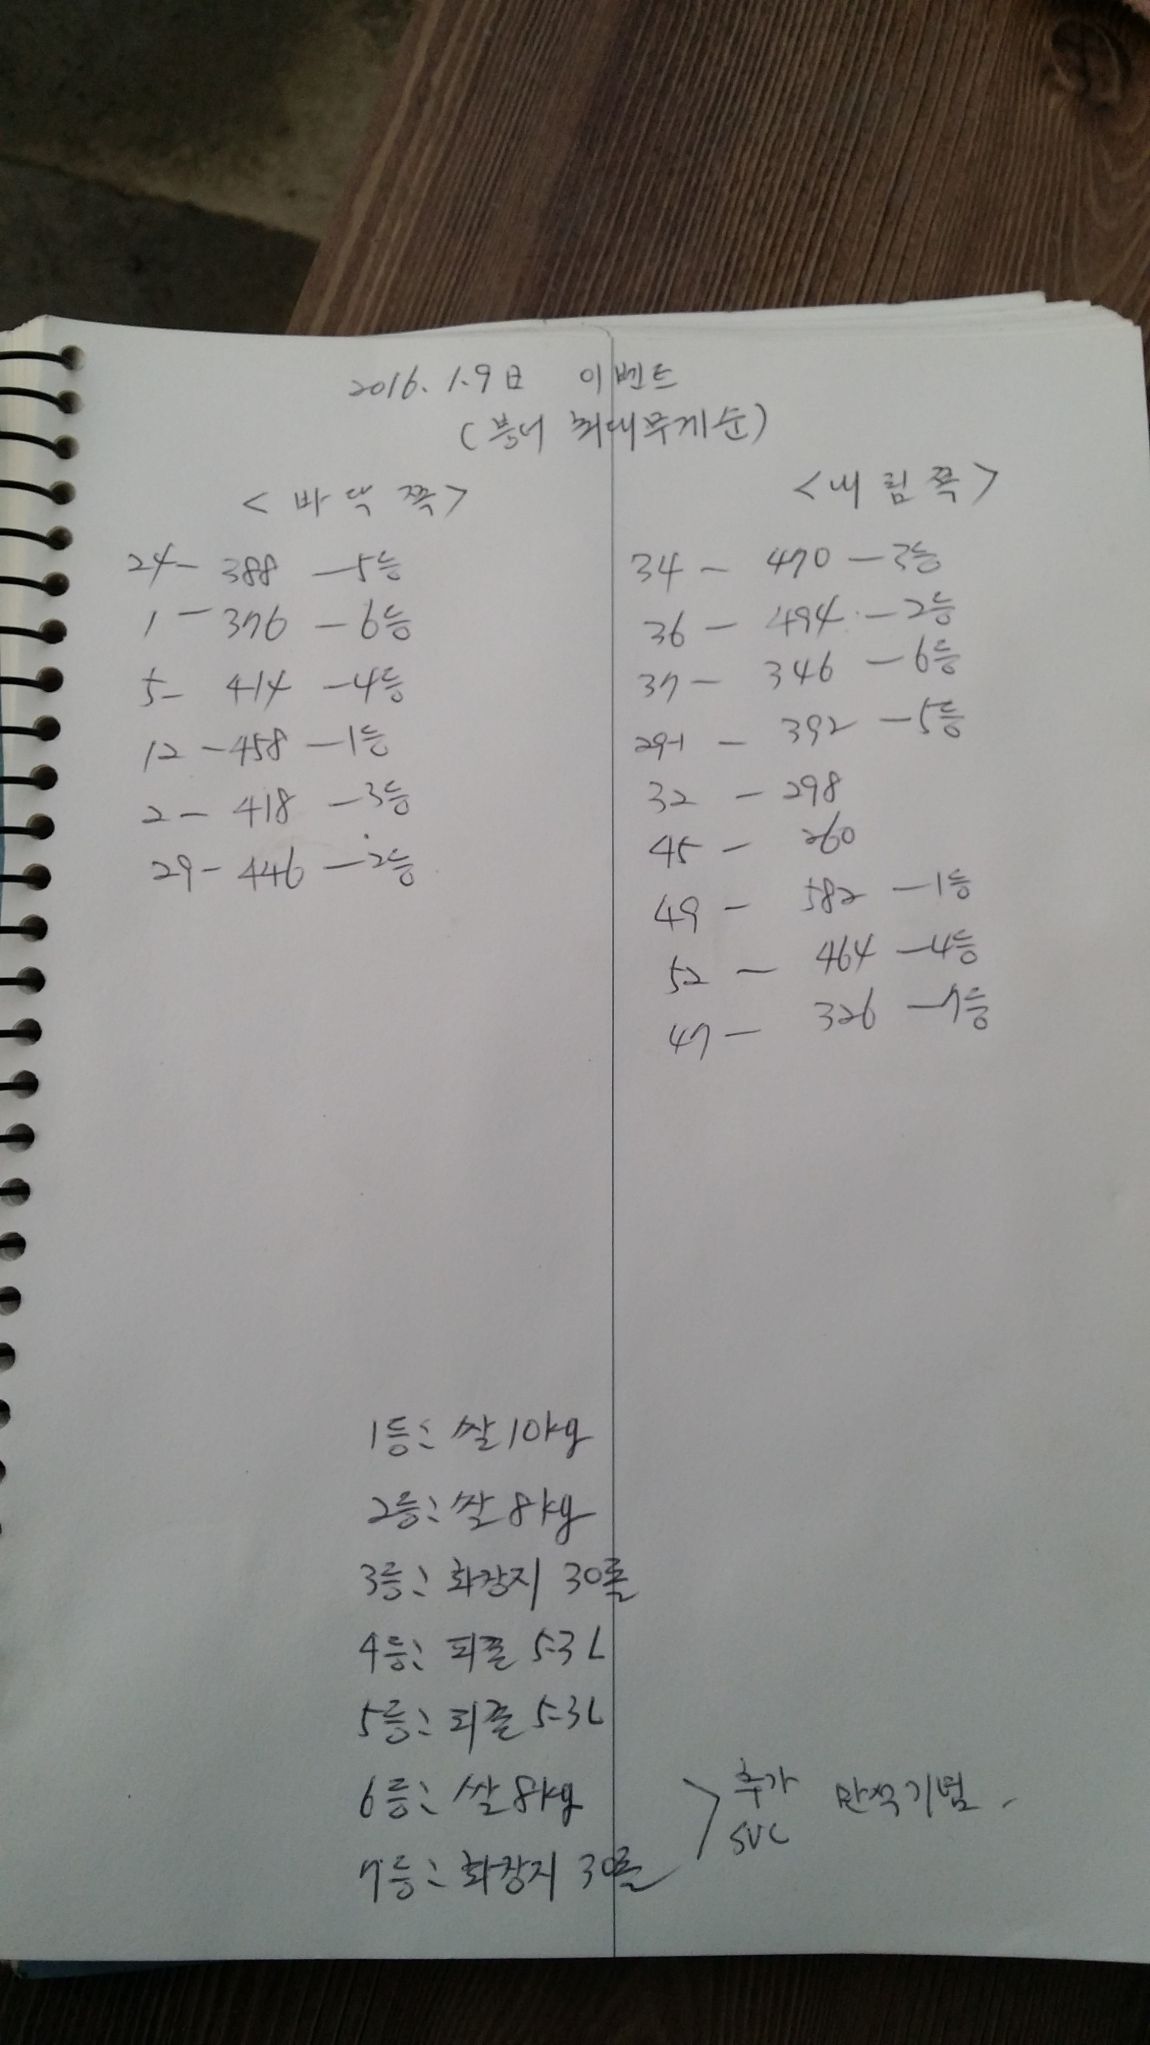 2016. 1.9日 이벤트
(붕어 최대무게순)
<바닥쪽>
24- 388 -5등
1 - 376 -6등
5- 414 -4등
12 -458 -1등
2 - 418 -3등
29- 446 -2등
<내림쪽>
34 - 470 -3등
36 - 494 -2등
37 - 346 -6등
29-1 - 392 -5등
32 - 298
45 - 260
49 - 582 -1등
52 - 464 -4등
47 - 326 -7등
1등: 쌀10kg
2등: 쌀8kg
3등: 화장지 30롤
4등: 피죤 5.3L
5등: 피죤 5.3L
6등: 쌀8kg
7등: 화장지 30롤
> 추가 SVC 만석기념.